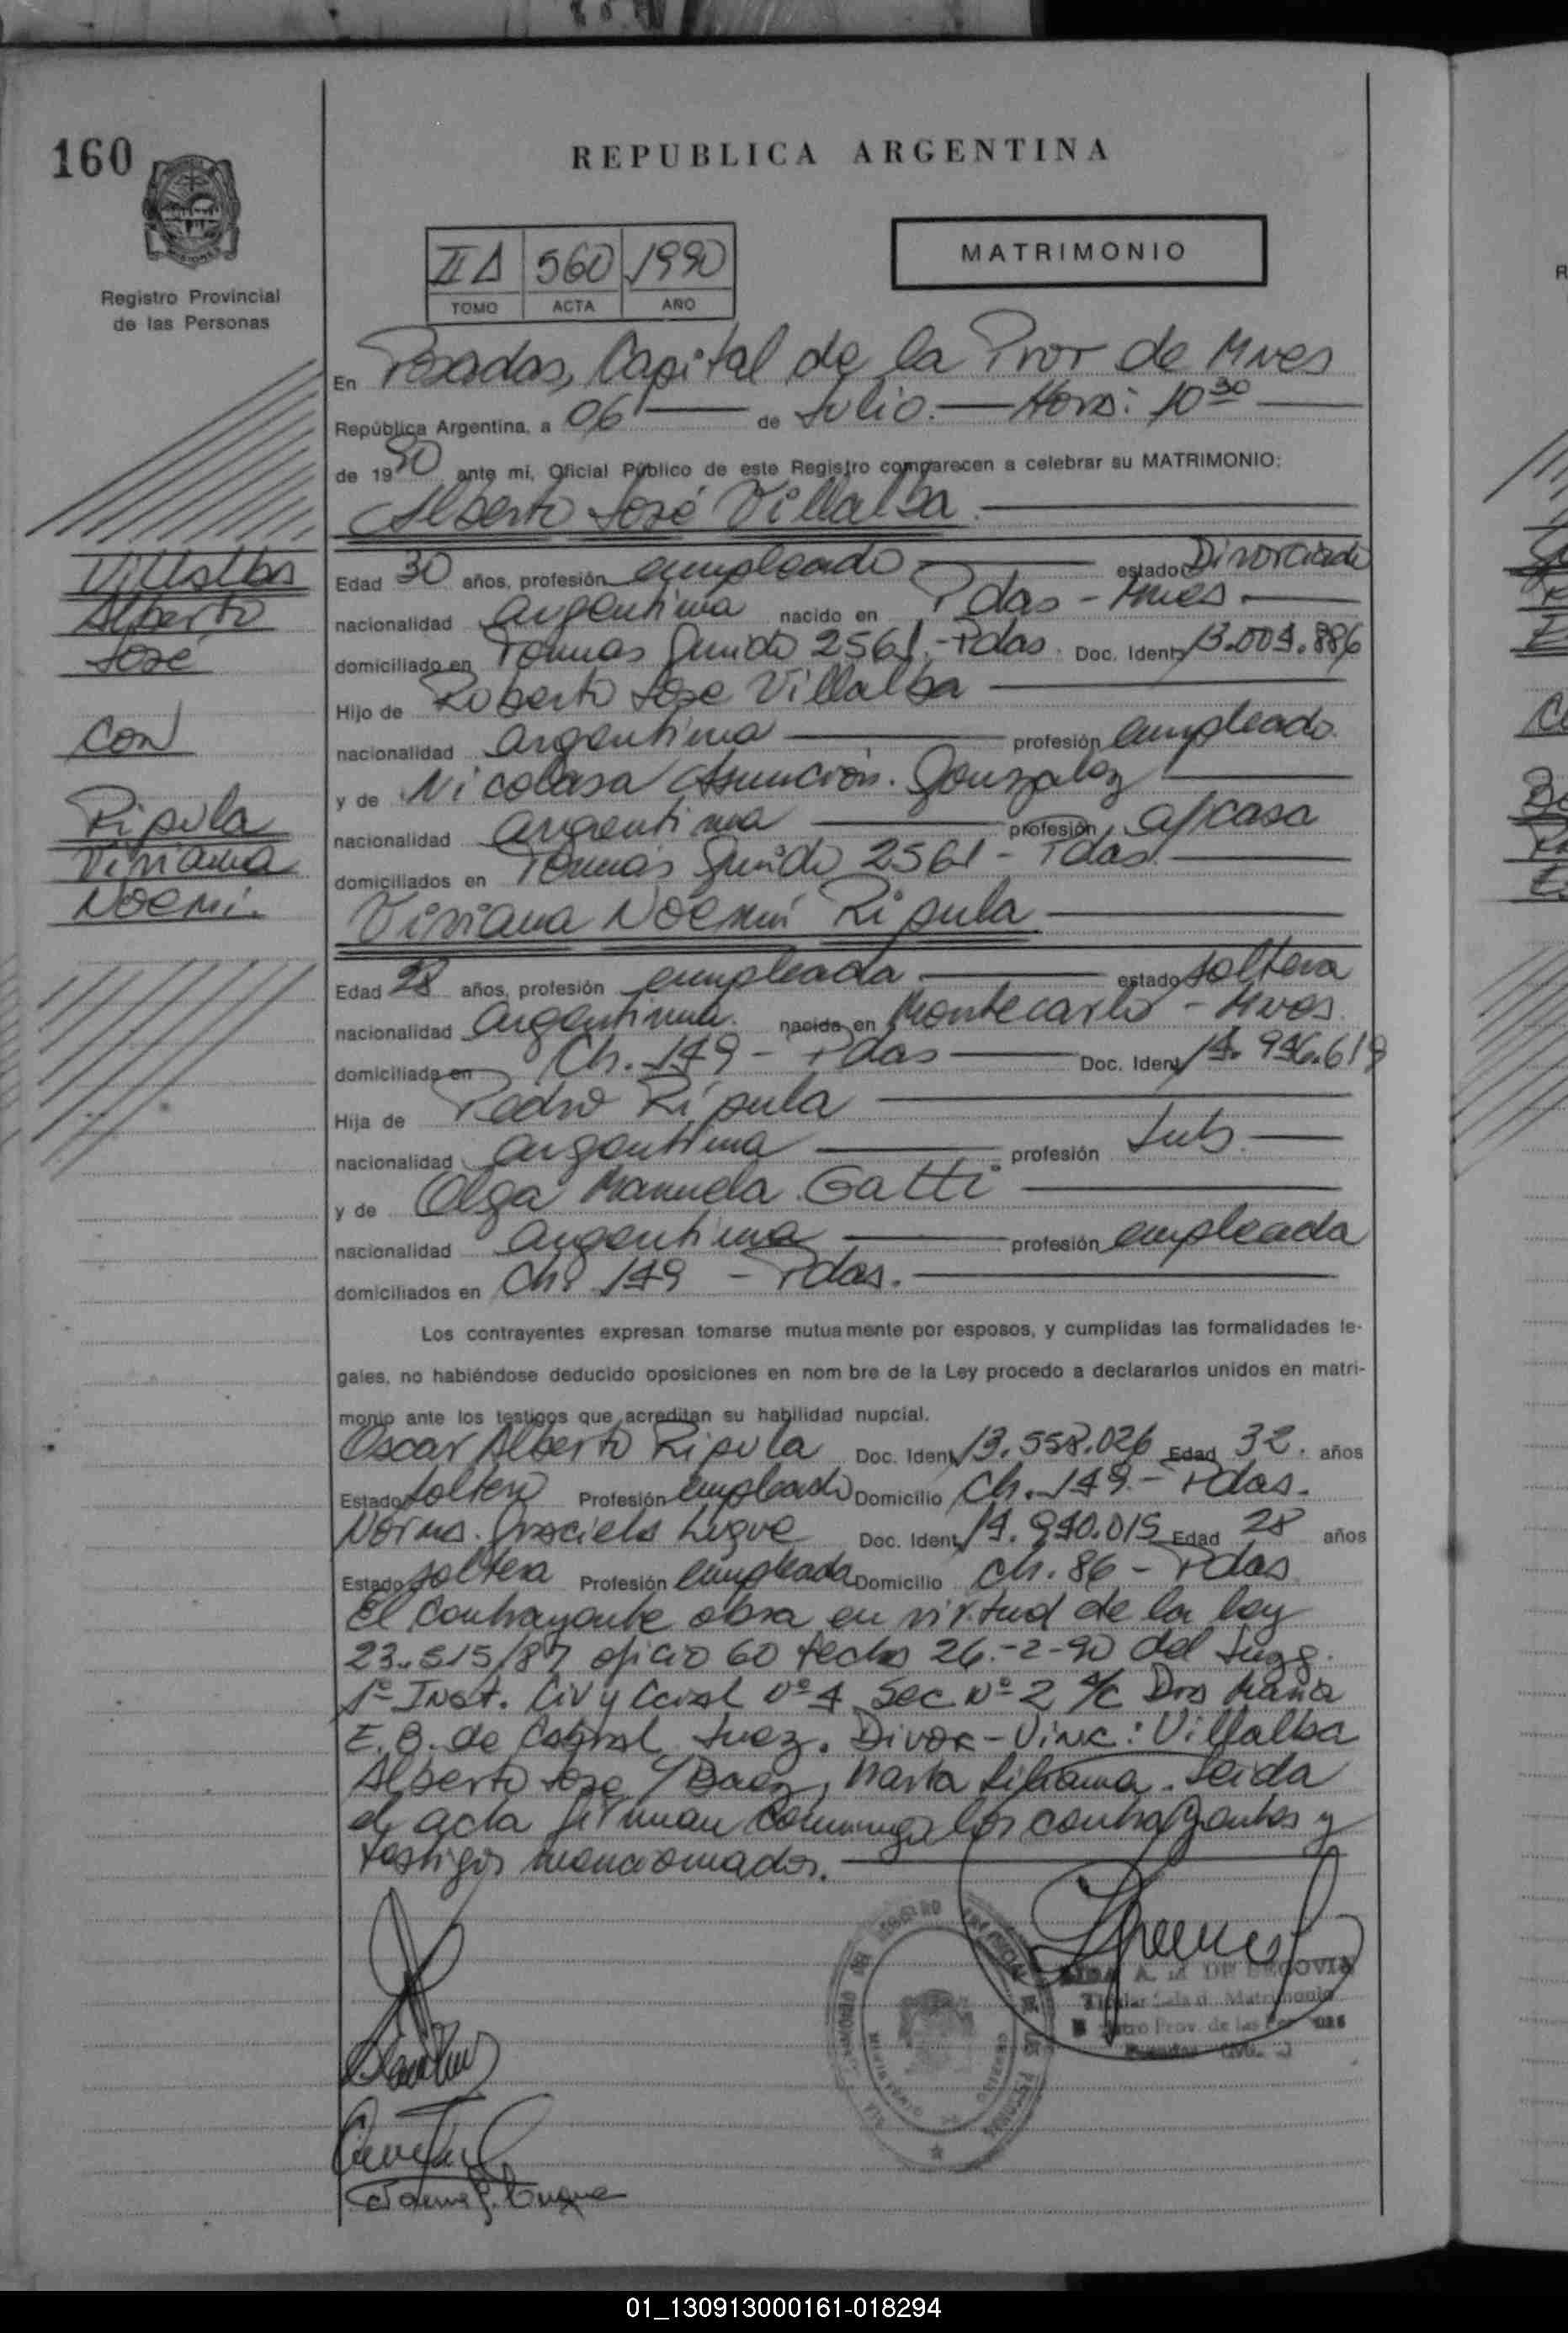 160
REPUBLICA ARGENTINA
MATRIMONIO
II A 560 1990
TOMO ACTA AÑO
Registro Provincial
de las Personas
En Posadas, Capital de la Prov de Mnes
República Argentina, a 06 de Julio. Hora: 10 30
de 1990 ante mi, Oficial Público de este Registro comparecen a celebrar su MATRIMONIO:
Alberto José Villalba
Villalba
Alberto
José
con
Ripula
Viviana
Noemi.
Edad 30 años, profesión empleado estado Divorciado
nacionalidad argentina nacido en Pdas - Mnes
domiciliado en Tomas Guido 2561 - Pdas. Doc. Ident. 13.004.886
Hijo de Roberto Jose Villalba
nacionalidad argentina profesión empleado
y de Nicolasa Asunción Gonzalez
nacionalidad argentina profesión a/casa
domiciliados en Tomás Guido 2561 - Pdas.
Viviana Noemí Ripula
Edad 28 años, profesión empleada estado soltera
nacionalidad argentina nacida en Montecarlo - Mnes.
domiciliada en Ch. 149 - Pdas Doc. Ident. 14.946.619
Hija de Pedro Ripula
nacionalidad argentina profesión Jub.
y de Olga Manuela Gatti
nacionalidad argentina profesión empleada
domiciliados en Ch. 149 - Pdas.
Los contrayentes expresan tomarse mutuamente por esposos, y cumplidas las formalidades le-
gales, no habiéndose deducido oposiciones en nom bre de la Ley procedo a declararlos unidos en matri-
monio ante los testigos que acreditan su habilidad nupcial.
Oscar Alberto Ripula Doc. Ident. 13.558.026 Edad 32. años
Estado soltero Profesión empleado Domicilio Ch. 149 - Pdas.
Norma Graciela Luque Doc. Ident. 14.940.015 Edad 28 años
Estado soltera Profesión empleada Domicilio Ch. 86 - Pdas
El contrayente obra en virtud de la ley
23.515/87 oficio 60 fecha 26-2-90 del Juzg.
1º Inst. Civ y Ccial Nº 4 Sec Nº 2 a/c Dra Maria
E. B. de Cabral Juez. Divor-Vinc: Villalba
Alberto Jose c/ Baez, Marta Liliana. Leida
el acta firman conmigo los contrayentes y
testigos mencionados.
A. M. DE SEGOVIA
Titular Sala d. Matrimonio
Prov. de las Personas
01_130913000161-018294